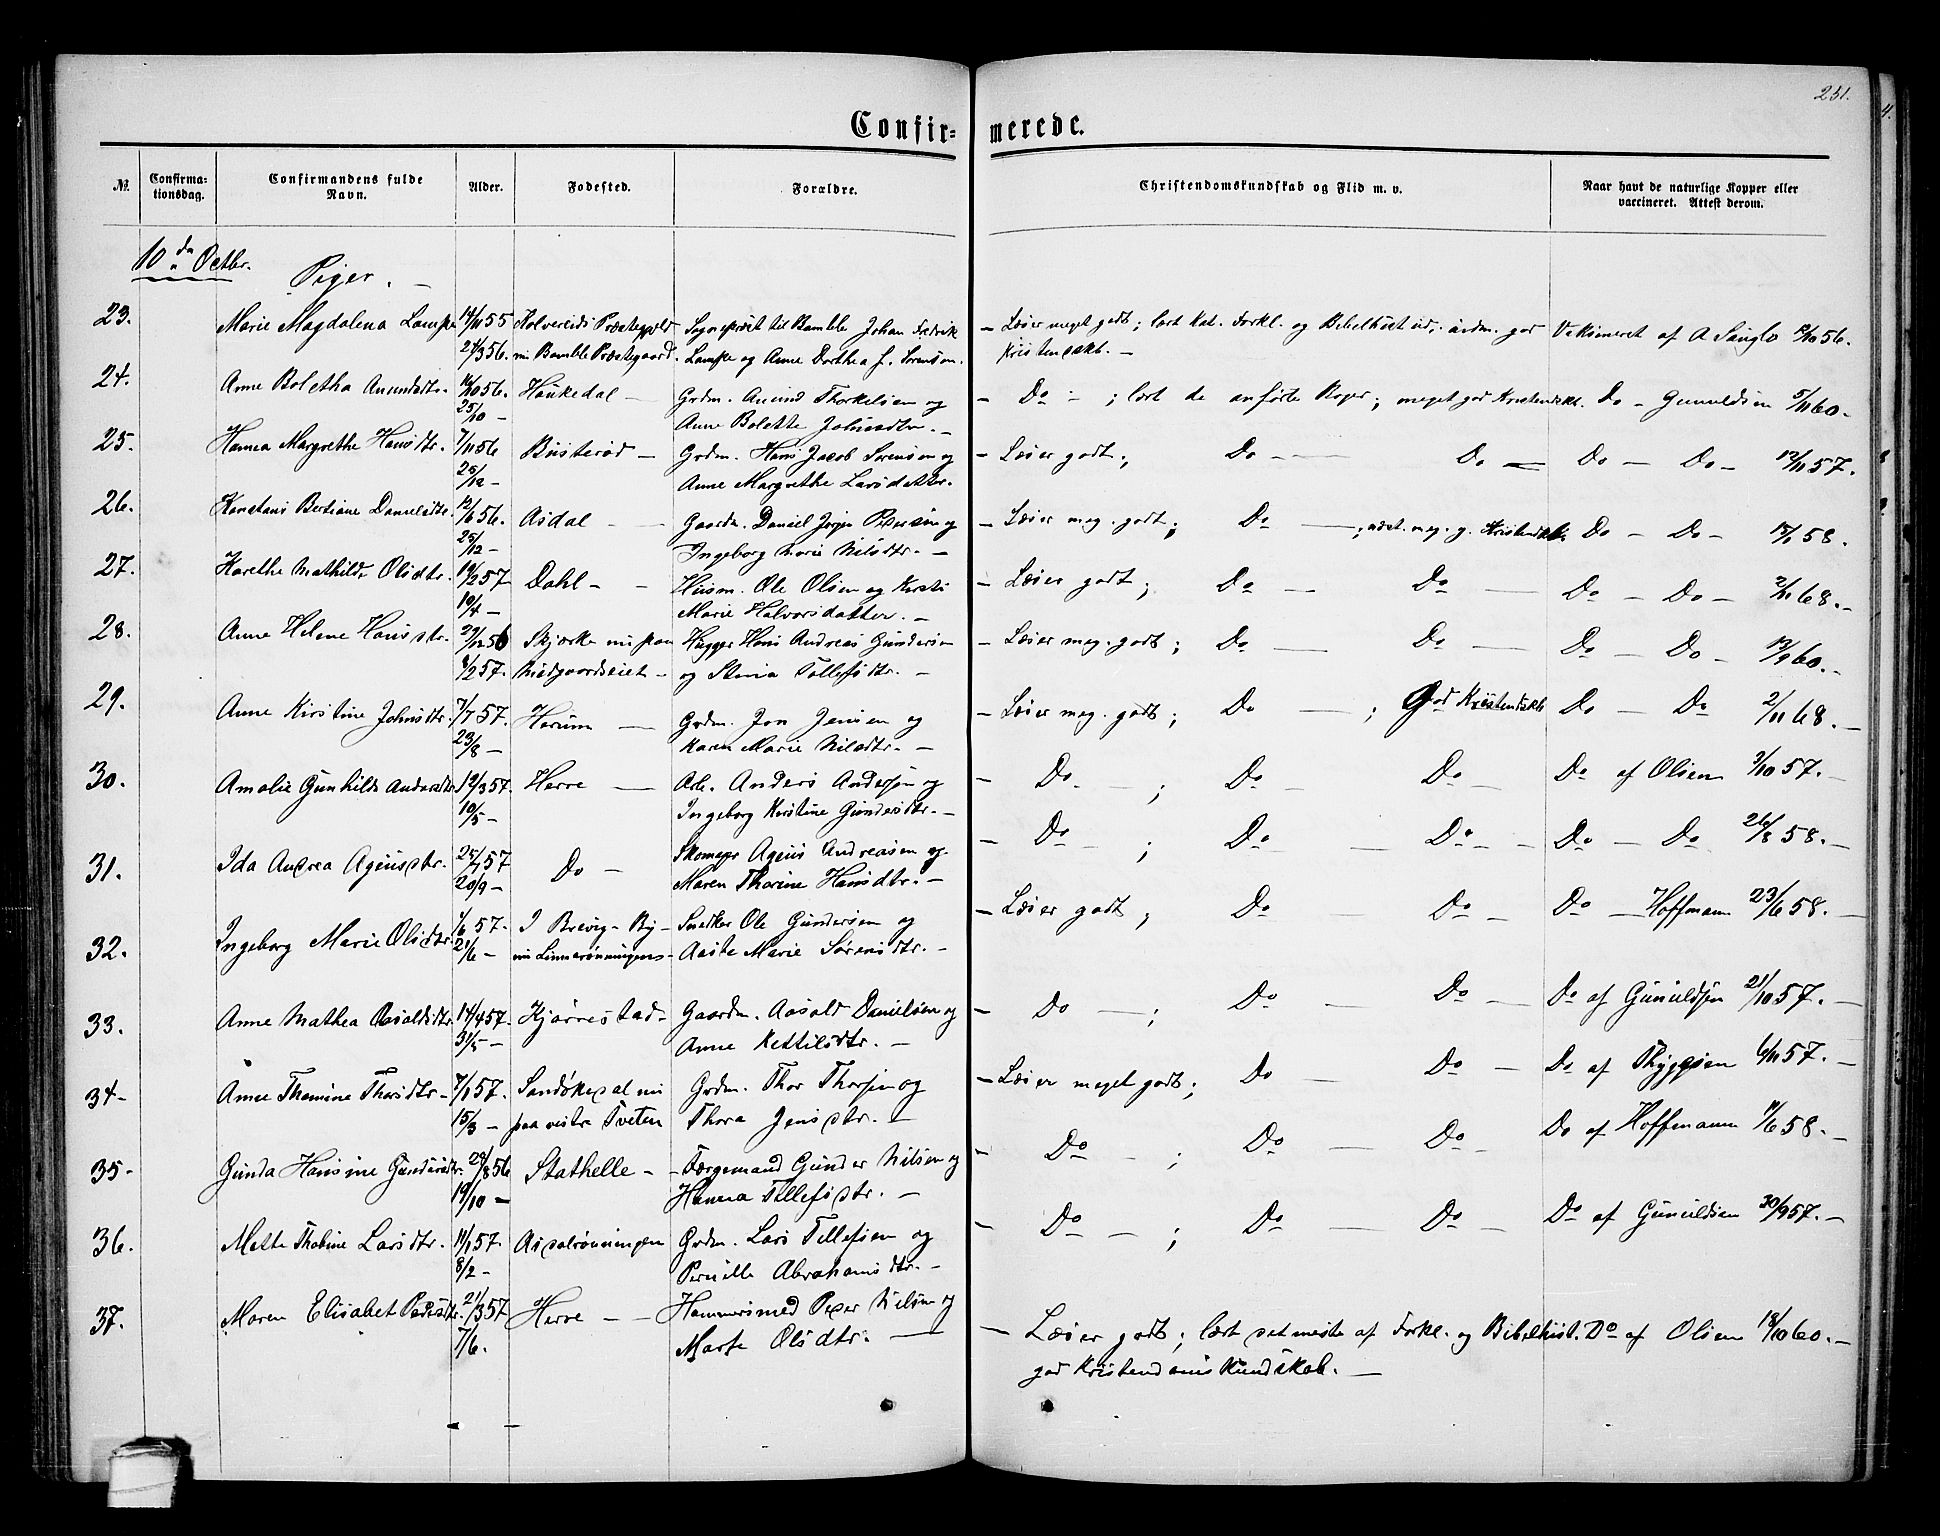 251.
Confirmerede.
№.
Confirmationsdag.
Confirmandens fulde Navn.
Alder.
Fødested.
Forældre.
Christendomskundskab og Flid m. v.
Naar havt de naturlige Kopper eller vaccineret. Attest derom.
10de Octbr.
Piger. —
23. Marie Magdalena Lampe 14/11 55 Kolvereids Præstegjeld Sognepræst til Bamble Johan Fredrik — Læser meget godt; lært Kat. Forkl. og Bibelhist. ud; udm. god Vaksineret af A Sanglo 56.
24/3 56. nu Bamble Præstegaard. Lampe og Anne Dorthea f. Sørensen. Kristendskb. —
24. Anne Boletha Anundsdtr. 10/10 56. Haukedal — Grdm. Anund Thorkelsen og — Do — ; lært de anførte Bøger; meget god Kristendskb. Do — Gunuldsen 5/11 60 —
25/10 — Anne Bolette Johnsdtr. —
25. Hanna Margrethe Hansdtr. 7/11 56 Busterød — Grdm. Hans Jacob Sørensen og — Læser godt; Do — Do — Do — Do — 12/11 57.
25/12 — Anne Margrethe Larsdatter.
26. Konstans Bertiane Danielsdtr. 12/6 56. Asdal — Gaardm. Daniel Jørgen Petersen og — Læser meg. godt; Do — ; meg. g. Kristendskb. Do — Do — 58.
25/12 — Ingeborg Marie Nilsdtr. —
27. Karethe Mathilde Olsdtr. 19/2 57 Dahl — Husm. Ole Olsen og Kirsti — Læser godt; Do — Do — Do — Do — 2/11 68. —
19/4 — Marie Halvorsdatter. —
28. Anne Helene Hansdtr. 27/12 56 Skjærke nu paa Hugger Hans Andreas Gundersen — Læser meg. godt; Do — Do — Do — Do — 12/9 60. —
8/2 57. Midgaardseiet — og Stina Tollefsdtr. —
29. Anne Kirstine Johnsdtr. 7/7 57. Hørum — Grdm. Jon Jensen og — Læser meg. godt; Do — ; God Kristendskb Do — Do 2/11 68. —
23/8 — Karen Marie Nilsdtr. —
30. Amalie Gunhilde Andersdtr. 19/3 57. Herre — Arb. Anders Andersen og — Do — ; Do — Do — Do af Olsen 9/10 57. —
10/5 — Ingeborg Kirstine Gundersdtr. —
31. Ida Andrea Ageusdtr. 25/7 57 Do — Skomager Ageus Andreasen og — Do — ; Do — Do — Do — Do 26/8 58. —
20/9 — Maren Thorine Hansdtr. —
32. Ingeborg Marie Olsdtr. 4/6 57. I Brevig By — Snedker Ole Gundersen og — Læser godt; Do — Do — Do — Hoffmann 23/6 58. —
21/6 — nu Linnerønningen — Aaste Marie Sørensdtr. —
33. Anne Mathea Aasoldsdtr. 14/4 57. Kjørrestad — Gaardm. Aasold Danielsen og — Do — ; Do — Do — Do af Gunuldsen 21/10 57. —
31/5 — Anne Kettilsdtr. —
34 — Anne Thomine Thorsdtr — 7/1 57. Sandøkedal nu Grdm. Thor Thorsen og — Læser meget godt; Do — Do — Do af Thygesen 6/11 57. —
15/3 — paa vestre Tveten Thora Jensdtr. —
35 — Gunda Hansine Gundersdtr. 29/8 56 Stathelle — Færgemand Gunder Nilsen og — Do — ; Do — Do — Do af Hoffmann 11/6 58. —
19/10 — Hanna Tellefsdtr. —
36. Mette Thobine Larsdtr. 11/1 57. Asdalrønningen Grdm. Lars Tellefsen og — Do — ; Do — Do — Do af Gunuldsen 30/9 57. —
8/2 — Pernille Abrahamsdtr. —
37. Maren Elisabet Pedersdtr. 21/3 57 Herre — Hammersmed Peder Nilsen og — Læser godt; lært det meste af Forkl. og Bibelhist. Do af Olsen 18/10 60. —
7/6. Marte Olsdtr. — god Kristendomskundskab. —